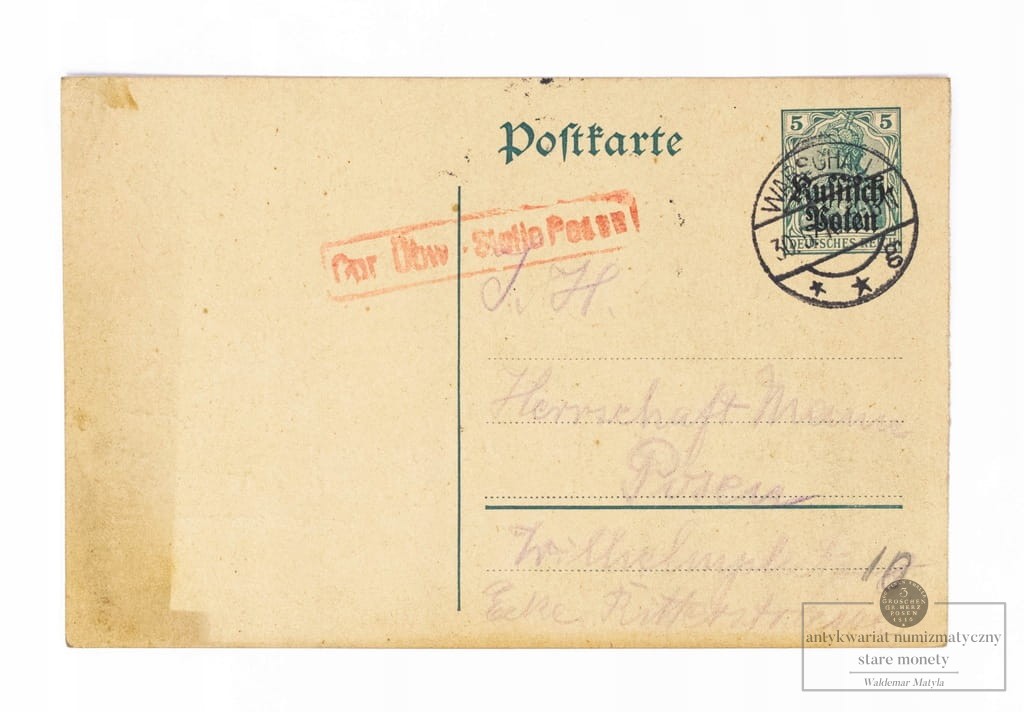 Postkarte
5 5
WARSCHAU
Russisch
Polen
DEUTSCHES REICH
30.
Gpr Übw.-Stelle Posen
S. H.
Herrschaft Mann
Posen
Wilhelmplatz 10
Ecke Ritterstrasse
3
GROSCHEN
GR. HERZ
POSEN
1816
antykwariat numizmatyczny
stare monety
Waldemar Matyla